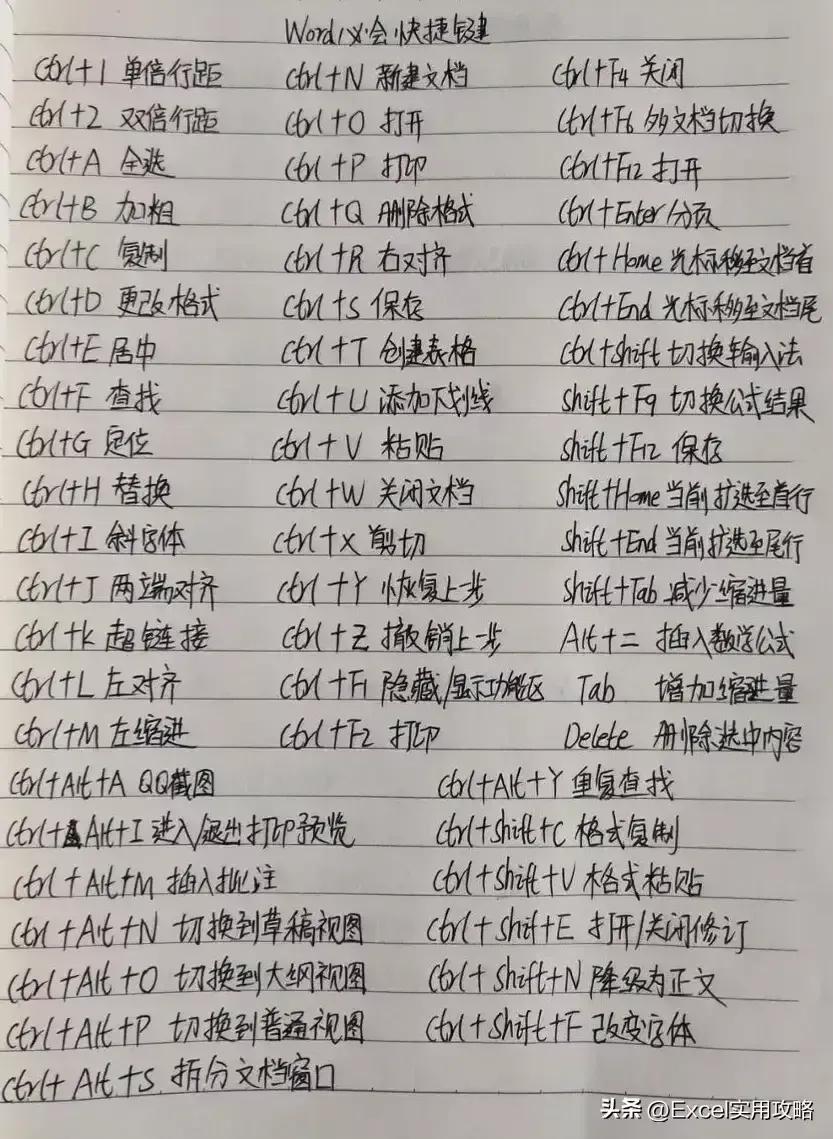 Word必会快捷键
Ctrl+1 单倍行距 Ctrl+N 新建文档 Ctrl+F4 关闭
Ctrl+2 双倍行距 Ctrl+O 打开 Ctrl+F6 多文档切换
Ctrl+A 全选 Ctrl+P 打印 Ctrl+F12 打开
Ctrl+B 加粗 Ctrl+Q 删除格式 Ctrl+Enter 分页
Ctrl+C 复制 Ctrl+R 右对齐 Ctrl+Home 光标移至文档首
Ctrl+D 更改格式 Ctrl+S 保存 Ctrl+End 光标移至文档尾
Ctrl+E 居中 Ctrl+T 创建表格 Ctrl+shift 切换输入法
Ctrl+F 查找 Ctrl+U 添加下划线 Shift+F9 切换公式结果
Ctrl+G 定位 Ctrl+V 粘贴 Shift+F12 保存
Ctrl+H 替换 Ctrl+W 关闭文档 Shift+Home 当前扩选至首行
Ctrl+I 斜字体 Ctrl+X 剪切 Shift+End 当前扩选至尾行
Ctrl+J 两端对齐 Ctrl+Y 恢复上一步 Shift+Tab 减少缩进量
Ctrl+K 超链接 Ctrl+Z 撤销上一步 Alt+= 插入数学公式
Ctrl+L 左对齐 Ctrl+F1 隐藏/显示功能区 Tab 增加缩进量
Ctrl+M 左缩进 Ctrl+F2 打印 Delete 删除选中内容
Ctrl+Alt+A QQ截图 Ctrl+Alt+Y 重复查找
Ctrl+Alt+I 进入/退出打印预览 Ctrl+Shift+C 格式复制
Ctrl+Alt+M 插入批注 Ctrl+Shift+V 格式粘贴
Ctrl+Alt+N 切换到草稿视图 Ctrl+Shift+E 打开/关闭修订
Ctrl+Alt+O 切换到大纲视图 Ctrl+Shift+N 降级为正文
Ctrl+Alt+P 切换到普通视图 Ctrl+Shift+F 改变字体
Ctrl+Alt+S 拆分文档窗口
头条 @Excel实用攻略